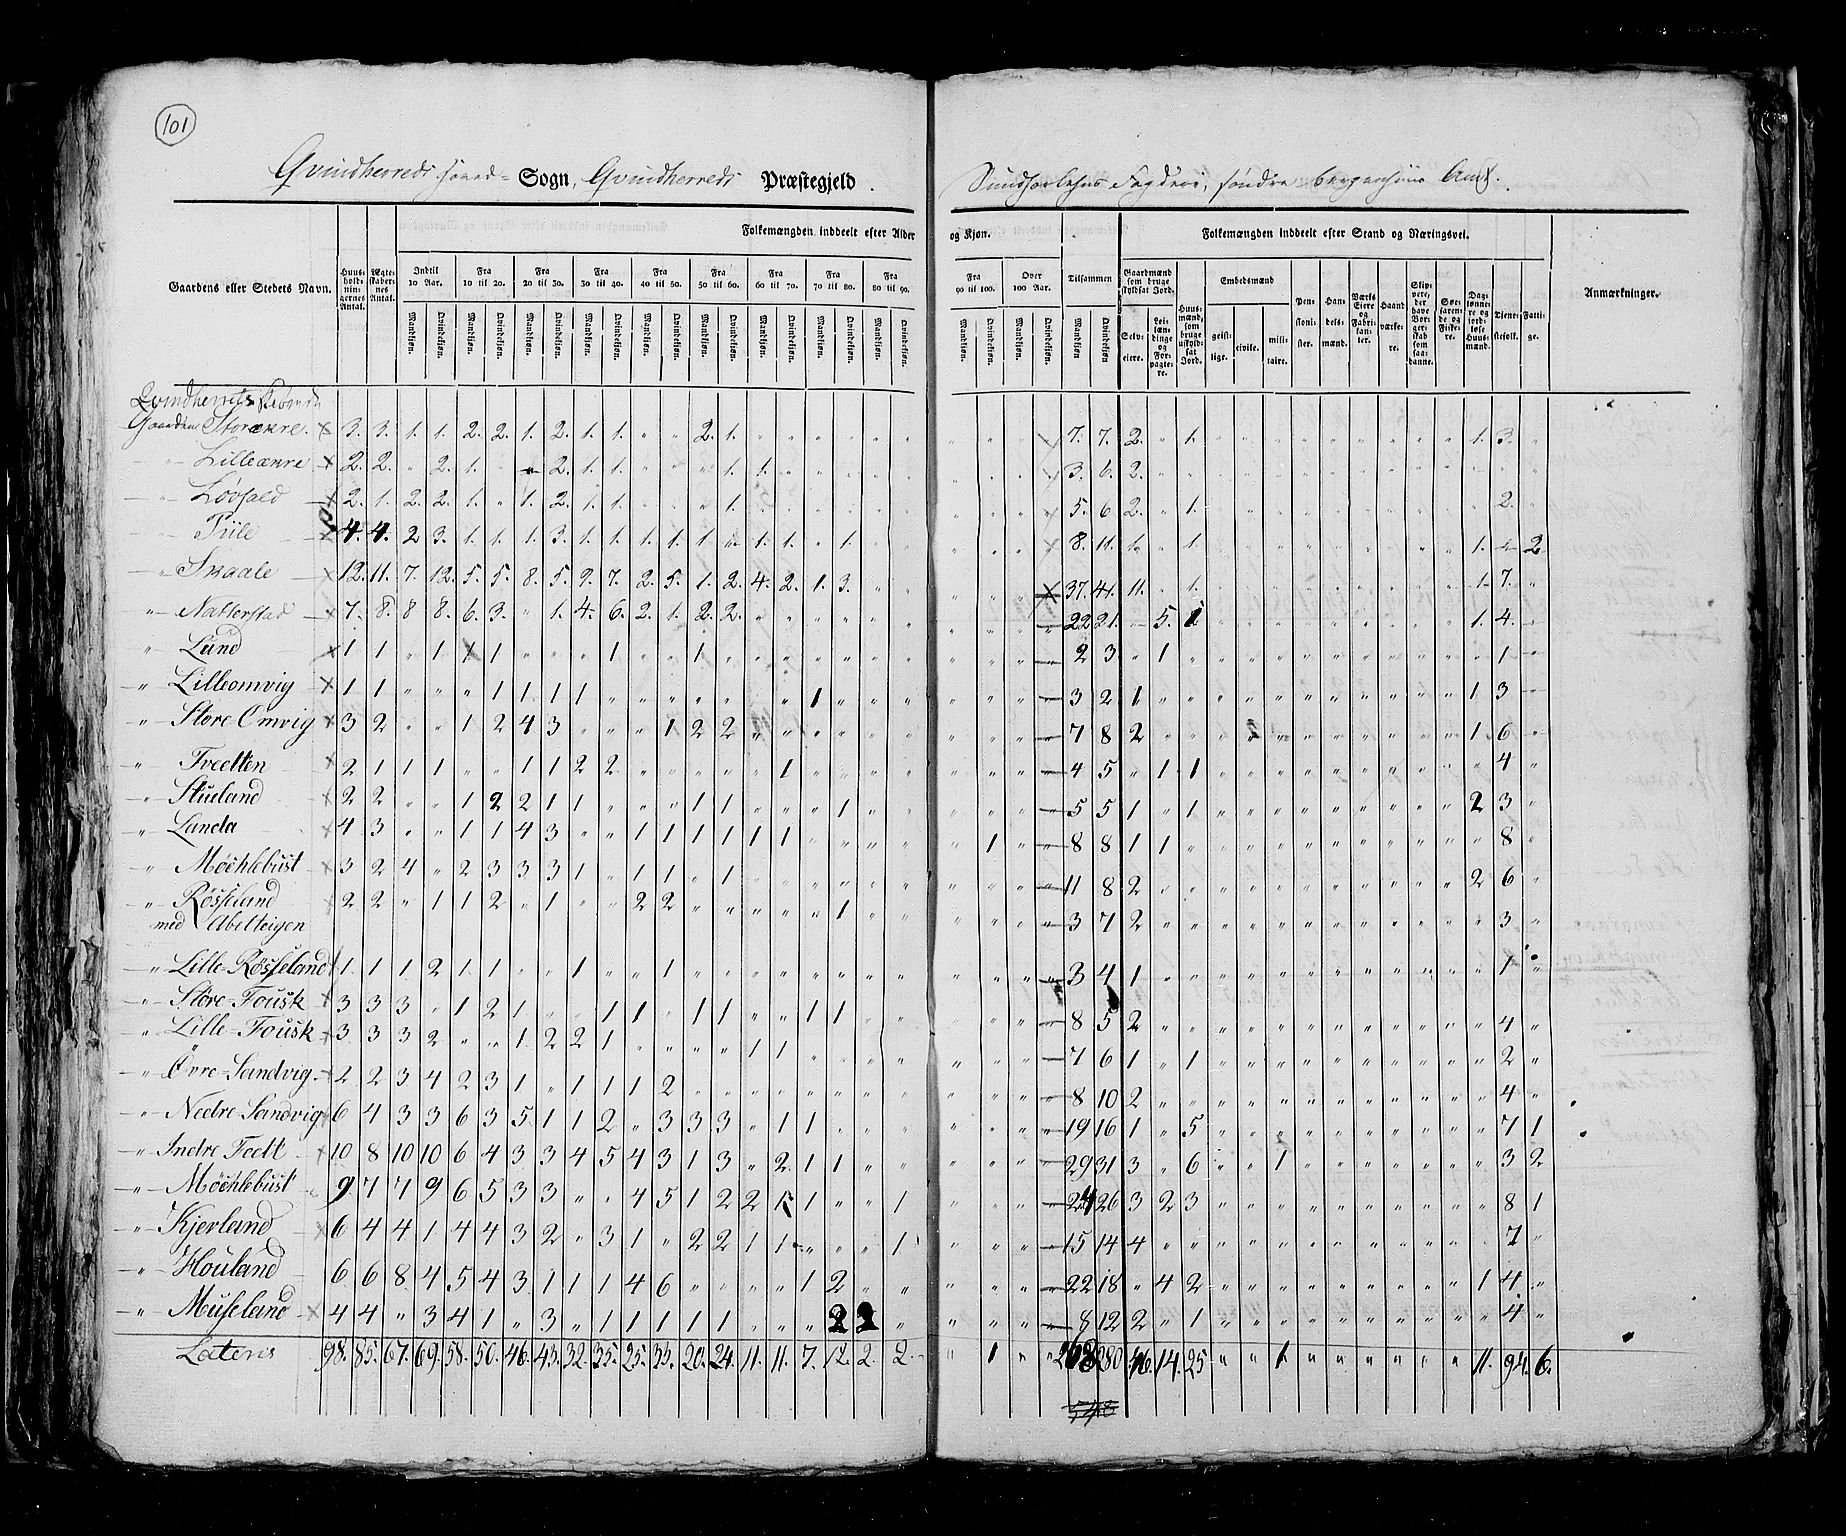 101
Qvindherreds hoved- Sogn, Qvindherreds Præstegjeld. Søndhorlehns Fogderi, søndre bergenhuus Amt.
Folkemængden inddeelt efter Alder og Kjøn. Folkemængden inddeelt efter Stand og Næringsvei.
Gaardens eller Stedets Navn. Huusholdningernes Antal. Ægteskabernes Antal. Indtil 10 Aar. Fra 10 til 20. Fra 20 til 30. Fra 30 til 40. Fra 40 til 50. Fra 50 til 60. Fra 60 til 70. Fra 70 til 80. Fra 80 til 90. Fra 90 til 100. Over 100 Aar. Tilsammen Gaardmænd som bruge skyldsat Jord. Huusmænd, som bruge uskyldsat Jord. Embedsmænd Pensionister. Handelsmænd. Værks Eiere og Fabrikanter. Haandværkere. Skippere, der have Borgerskab som saadanne. Søefarende og Fiskere. Dagslønnere og jordløse Huusmænd. Tjenestefolk. Fattige. Anmærkninger.
Mandkjøn. Qvindekjøn. Selveiere. Leilændinge og Forpagtere. geistlige. civile. militaire.
Gaarden Storækre. 3. 3. 1. 1. 2. 2. 1. 2. 1. 1. " " 2. 1. 7. 7. 2. " 1. 1. 3.
" Lilleækre 2. 2. " 2. 1. " " 2. 1. 1. " " " 1. 1. 3. 6. 2.
" Løvfald 2. 1. 2. 2. 1. " 1. 2. 1. 1. " " " 1. 5. 6 2. " 1. 2.
" Piile 4. 4. 2 3. 1. 1. 1. 3. 1. 1. 1. 1. 1. " 1. 1. " 1. 8. 11. 1. " 1. 1. " 2
" Skaale 12. 11. 7. 12. 5. 5. 8. 5. 9. 7. 2. 5. 1. 2. 4. 2. 1. 3. 37. 41. 11. " 1. 1. 7.
" Natterstad 7. 8. 8 8. 6. 3. " 1. 4. 6. 2. 1. 2. 2. 22 21. " 5. 1 1. 4.
" Lund 1 1 " 1 1 1 " " " 1 " " 1 2 3 " 1 1
" Lilleomvig 1 1 " " " 1 1 1 1 1 3 2 1 1 3
" Store Omvig 3 2 " " 1 2 4 3 " " " 1 2 2 7 8 2 1 6
" Treetten 2 1 1 1 " " 1 1 2 2 1 4 5 " 1 1 4
" Stueland 2 2 " " 1 2 2 1 1 " " " 1 1 1 5 5 1 " 1 2 3
" Landa 4 3 " " 1 1 4 3 " " 1 1 1 1 1 1 1 8 8 1 1 8
" Møehlebust 3 2 4 " 2 3 3 3 1 " 1 1 " 1 11 8 2 2 6
" Røsseland 2 2 " 1 1 2 " 1 " " 2 2 1 3 7 2 3
med Abelteigen
" Lille-Røsseland 1 1 1 2 1 1 " " 1 " " 1 3 4 1 1
" Store-Fousk 3 3 3 " 1 2 1 " " 1 1 " 1 1 " " 1 1 8 5 2 4
" Lille-Fousk 3 3 3 2 " " 1 2 2 1 " " " " 1 1 7 6 1 " 1 2
" Övre-Sandvig 2 2 3 4 2 3 1 " 1 1 1 2 8 10 2 4
" Nedre-Sandvig 6 4 3 3 6 3 5 1 1 2 " 3 3 3 " 1 1 19 16 1 " 5 7 1
" Indre Foett 10 8 10 10 6 4 3 3 4 5 4 3 1 3 " 2 1 1 29 31 3 " 6 " " 1 3 2
" Møehlebust 9 7 7 9 6 5 3 3 " " 4 5 1 2 2 1 1 " " 1 24 26 3 2 3 8 1
" Kjerland 6 4 4 1 4 4 3 2 " 3 1 " 2 2 1 1 " " " 1 15 14 4 7
" Houland 6 6 8 4 5 4 3 1 1 1 4 6 " " " " 1 2 22 18 " 4 2 1 4
" Museland 4 4 " 3 4 1 " 3 " 1 1 1 1 1 " " " 2 2 " 8 12 2 " 1 4
Lateris 98. 85. 67. 69. 58. 50. 46. 43. 32. 35. 25. 35. 20. 24. 11. 11. 7. 12. 2. 2. " 1 " " 268 280 46. 14. 25 " " 1 11. 94. 6.
548